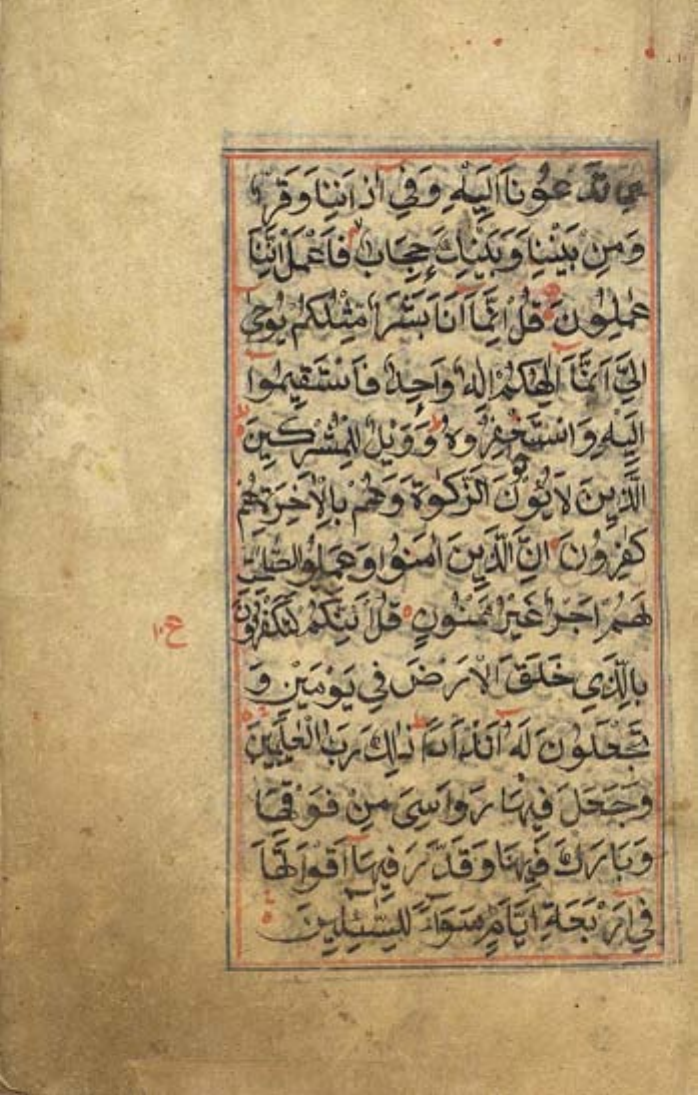 تَدْعُونَآ اِلَيْهِ وَفِيْٓ اٰذَانِنَا وَقْرٌ
وَمِنْۢ بَيْنِنَا وَبَيْنِكَ حِجَابٌ فَاعْمَلْ اِنَّنَا
عٰمِلُوْنَ قُلْ اِنَّمَآ اَنَا بَشَرٌ مِّثْلُكُمْ يُوْحٰٓى
اِلَيَّ اَنَّمَآ اِلٰهُكُمْ اِلٰهٌ وَّاحِدٌ فَاسْتَقِيْمُوْٓا
اِلَيْهِ وَاسْتَغْفِرُوْهُ ؕ وَوَيْلٌ لِّلْمُشْرِكِيْنَ
الَّذِيْنَ لَا يُؤْتُوْنَ الزَّكٰوةَ وَهُمْ بِالْاٰخِرَةِ هُمْ
كٰفِرُوْنَ اِنَّ الَّذِيْنَ اٰمَنُوْا وَعَمِلُوا الصّٰلِحٰتِ
لَهُمْ اَجْرٌ غَيْرُ مَمْنُوْنٍ قُلْ اَئِنَّكُمْ لَتَكْفُرُوْنَ
بِالَّذِيْ خَلَقَ الْاَرْضَ فِيْ يَوْمَيْنِ وَ
تَجْعَلُوْنَ لَهٗٓ اَنْدَادًا ؕ ذٰلِكَ رَبُّ الْعٰلَمِيْنَ
وَجَعَلَ فِيْهَا رَوَاسِيَ مِنْ فَوْقِهَا
وَبَارَكَ فِيْهَا وَقَدَّرَ فِيْهَآ اَقْوَاتَهَا
فِيْٓ اَرْبَعَةِ اَيَّامٍ سَوَآءً لِّلسَّآئِلِيْنَ